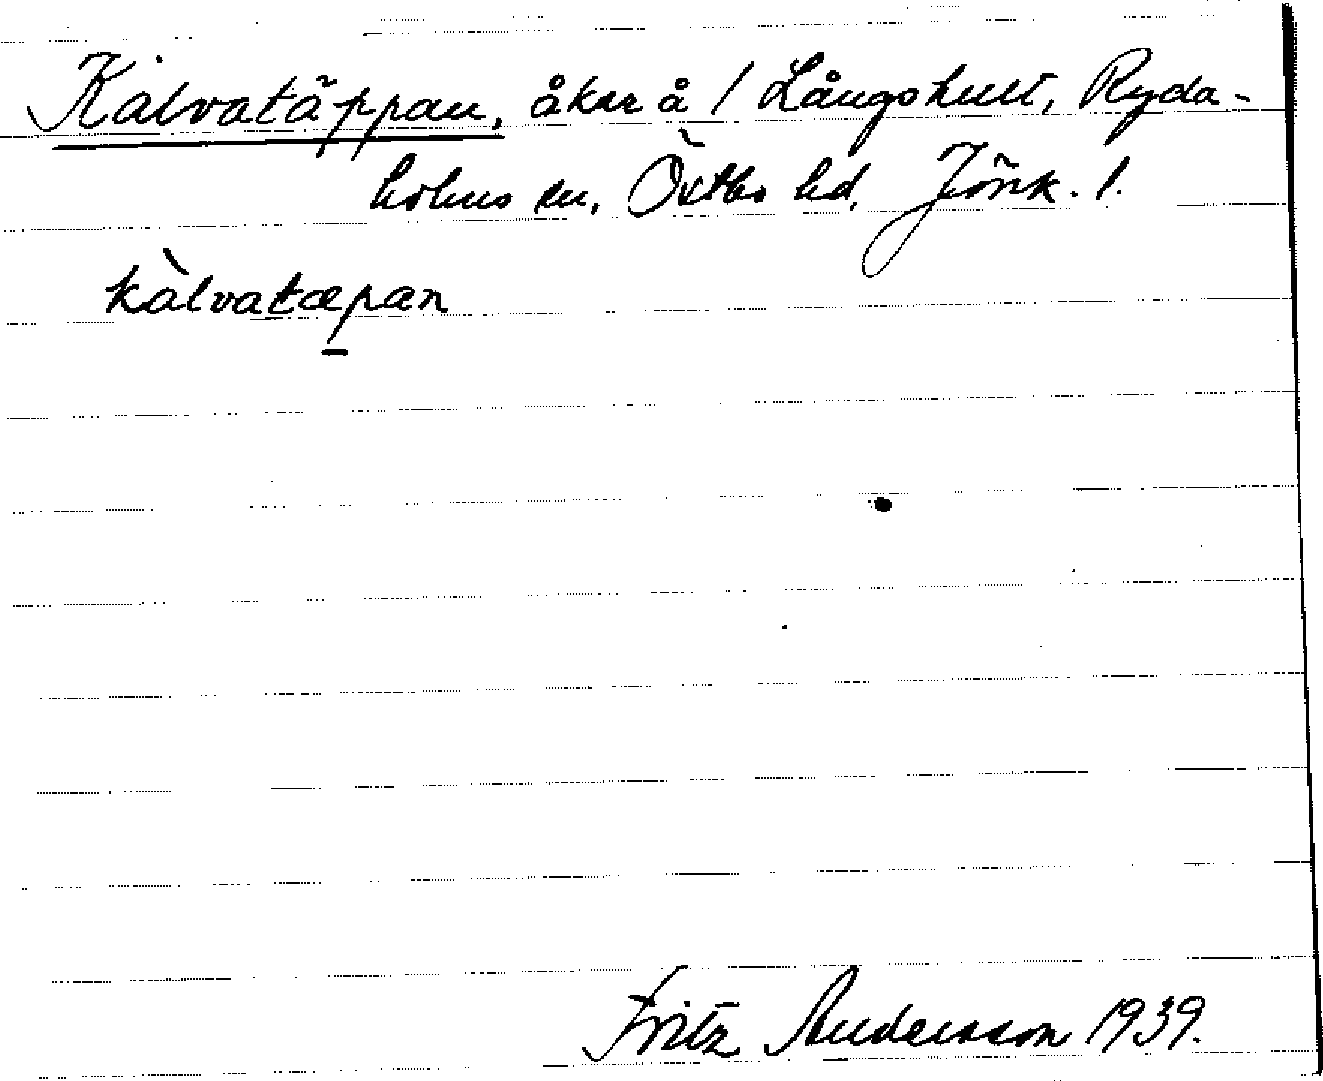 Kalvatäppan, åker å / Långshult, Ryda-
holms sn, Östbo hd, Jönk. l.
kàlvatæpan
Fritz Andersson 1939.